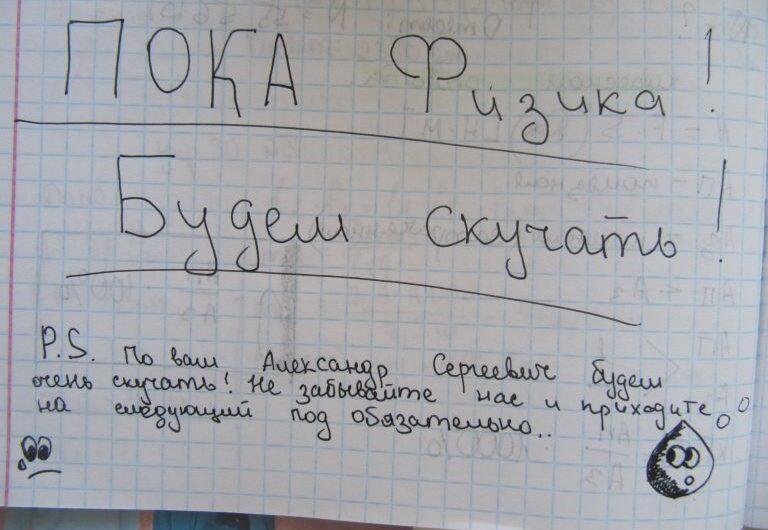 ПОКА Физика!
Будем скучать!
P.S. По вам Александр Сергеевич будем
очень скучать! Не забывайте нас и приходите
на следующий год обязательно..